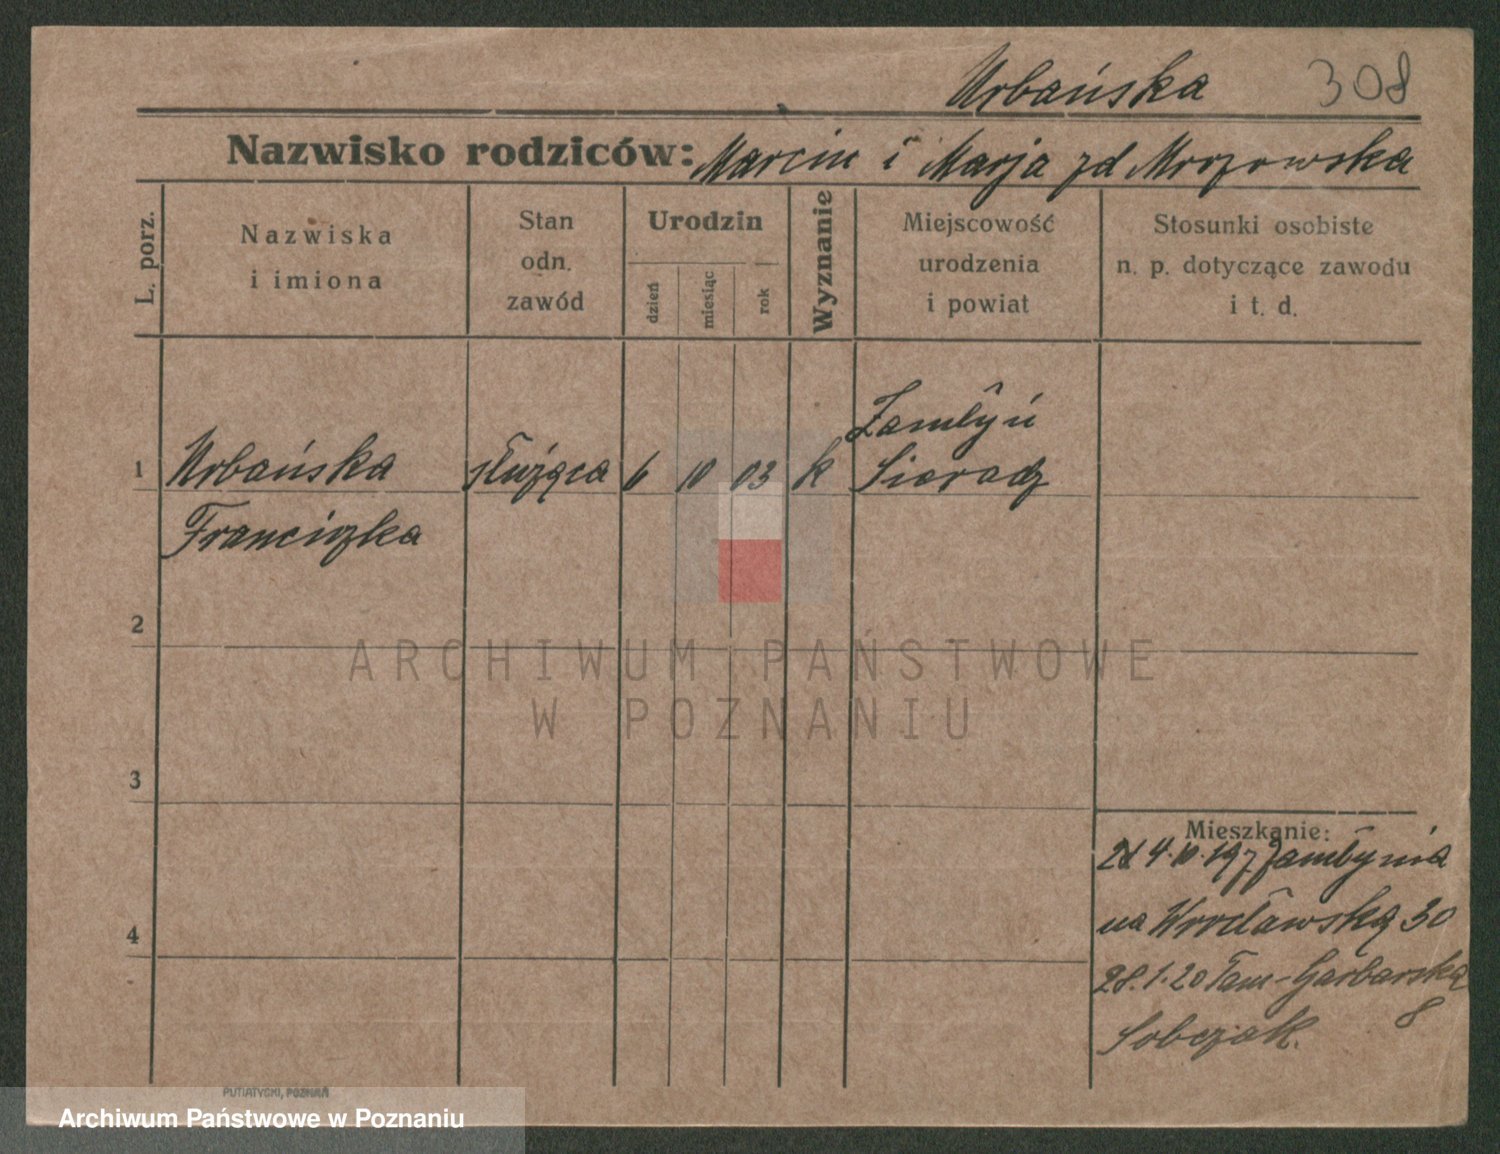 Urbańska 308
Nazwisko rodziców: Marcin i Marja zd Mrozowska
L. porz.
Nazwiska
i imiona
Stan
odn.
zawód
Urodzin
dzień
miesiąc
rok
Wyznanie
Miejscowość
urodzenia
i powiat
Stosunki osobiste
n. p. dotyczące zawodu
i t. d.
1 Urbańska służąca 6 10 03 k
Franciszka
Sieradz
2
3
4
Mieszkanie:
4.10.19
na Wrocławską 30
28.1.20 Tam-Garbarską
8
Sobczak.
ARCHIWUM PAŃSTWOWE
W POZNANIU
PUTIATYCKI, POZNAŃ
Archiwum Państwowe w Poznaniu